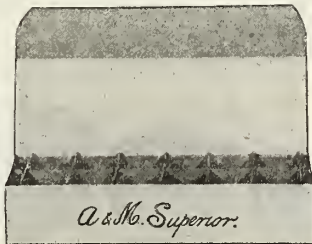 A & M. Superior.